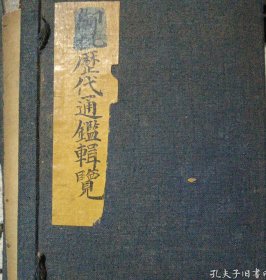 御批歷代通鑑輯覽
孔夫子旧書